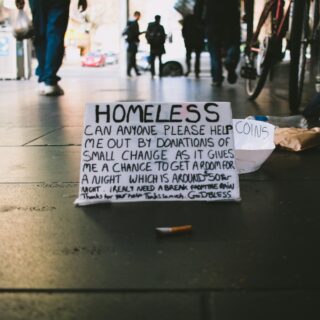 HOMELESS
CAN ANYONE PLEASE HELP
ME OUT BY DONATIONS OF
SMALL CHANGE AS IT GIVES
ME A CHANGE TO GET A ROOM FOR
A NIGHT WHICH IS AROUND 50 for
NIGHT. I REALY NEED A BREAK FROM THE RAIN
Thanks for your help Thanks so much. GOD BLESS
COINS